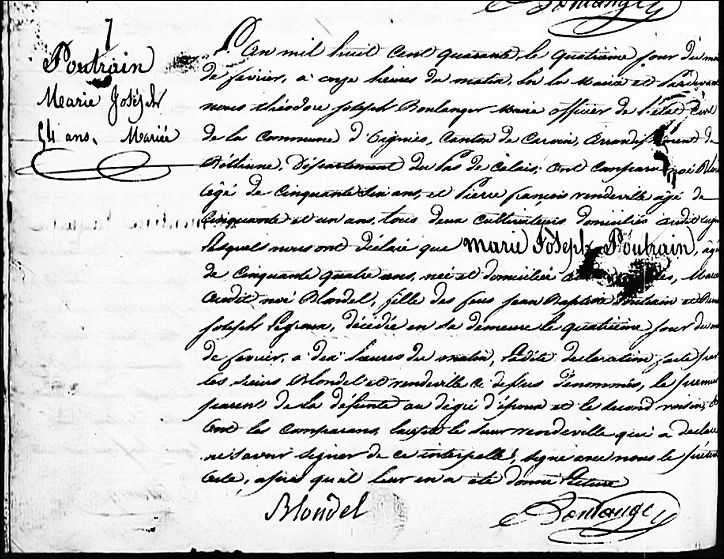 7
Poutrain
Marie Joseph
54 ans. Mariée
L'an mil huit cent quarante, le quatrième jour du mois
de fevrier, à onze heures du matin, Par devant
nous théodore Joseph Boulanger Maire officier de l'état civil
de la commune d'Oignies, Canton de Carvin, Arrondissement de
Béthune, Département du Pas de Calais; ont comparu noé Blon
âgé de cinquante six ans, et Pierre françois vendeville âgé de
cinquante et un ans, tous deux Cultivateurs domiciliés audit
lesquels nous ont déclaré que Marie Joseph Poutrain,
de cinquante quatre ans, née et domiciliée
audit noé Blondel, fille des feus Jean Baptiste Poutrain et
Joseph Legrand, décédée en sa demeure le quatrième jour du
de fevrier, à dix heures du matin, Ladite déclaration faite par
les sieurs Blondel et vendeville ci dessus dénommés, le premier
parent de la défunte au degré d'époux et le second voisin,
ont les comparans, excepté le sieur vendeville qui a déclaré
ne savoir signer de ce interpellé, signé avec nous le présent
acte, après qu'il leur en a été donné Lecture
Blondel
Boulanger